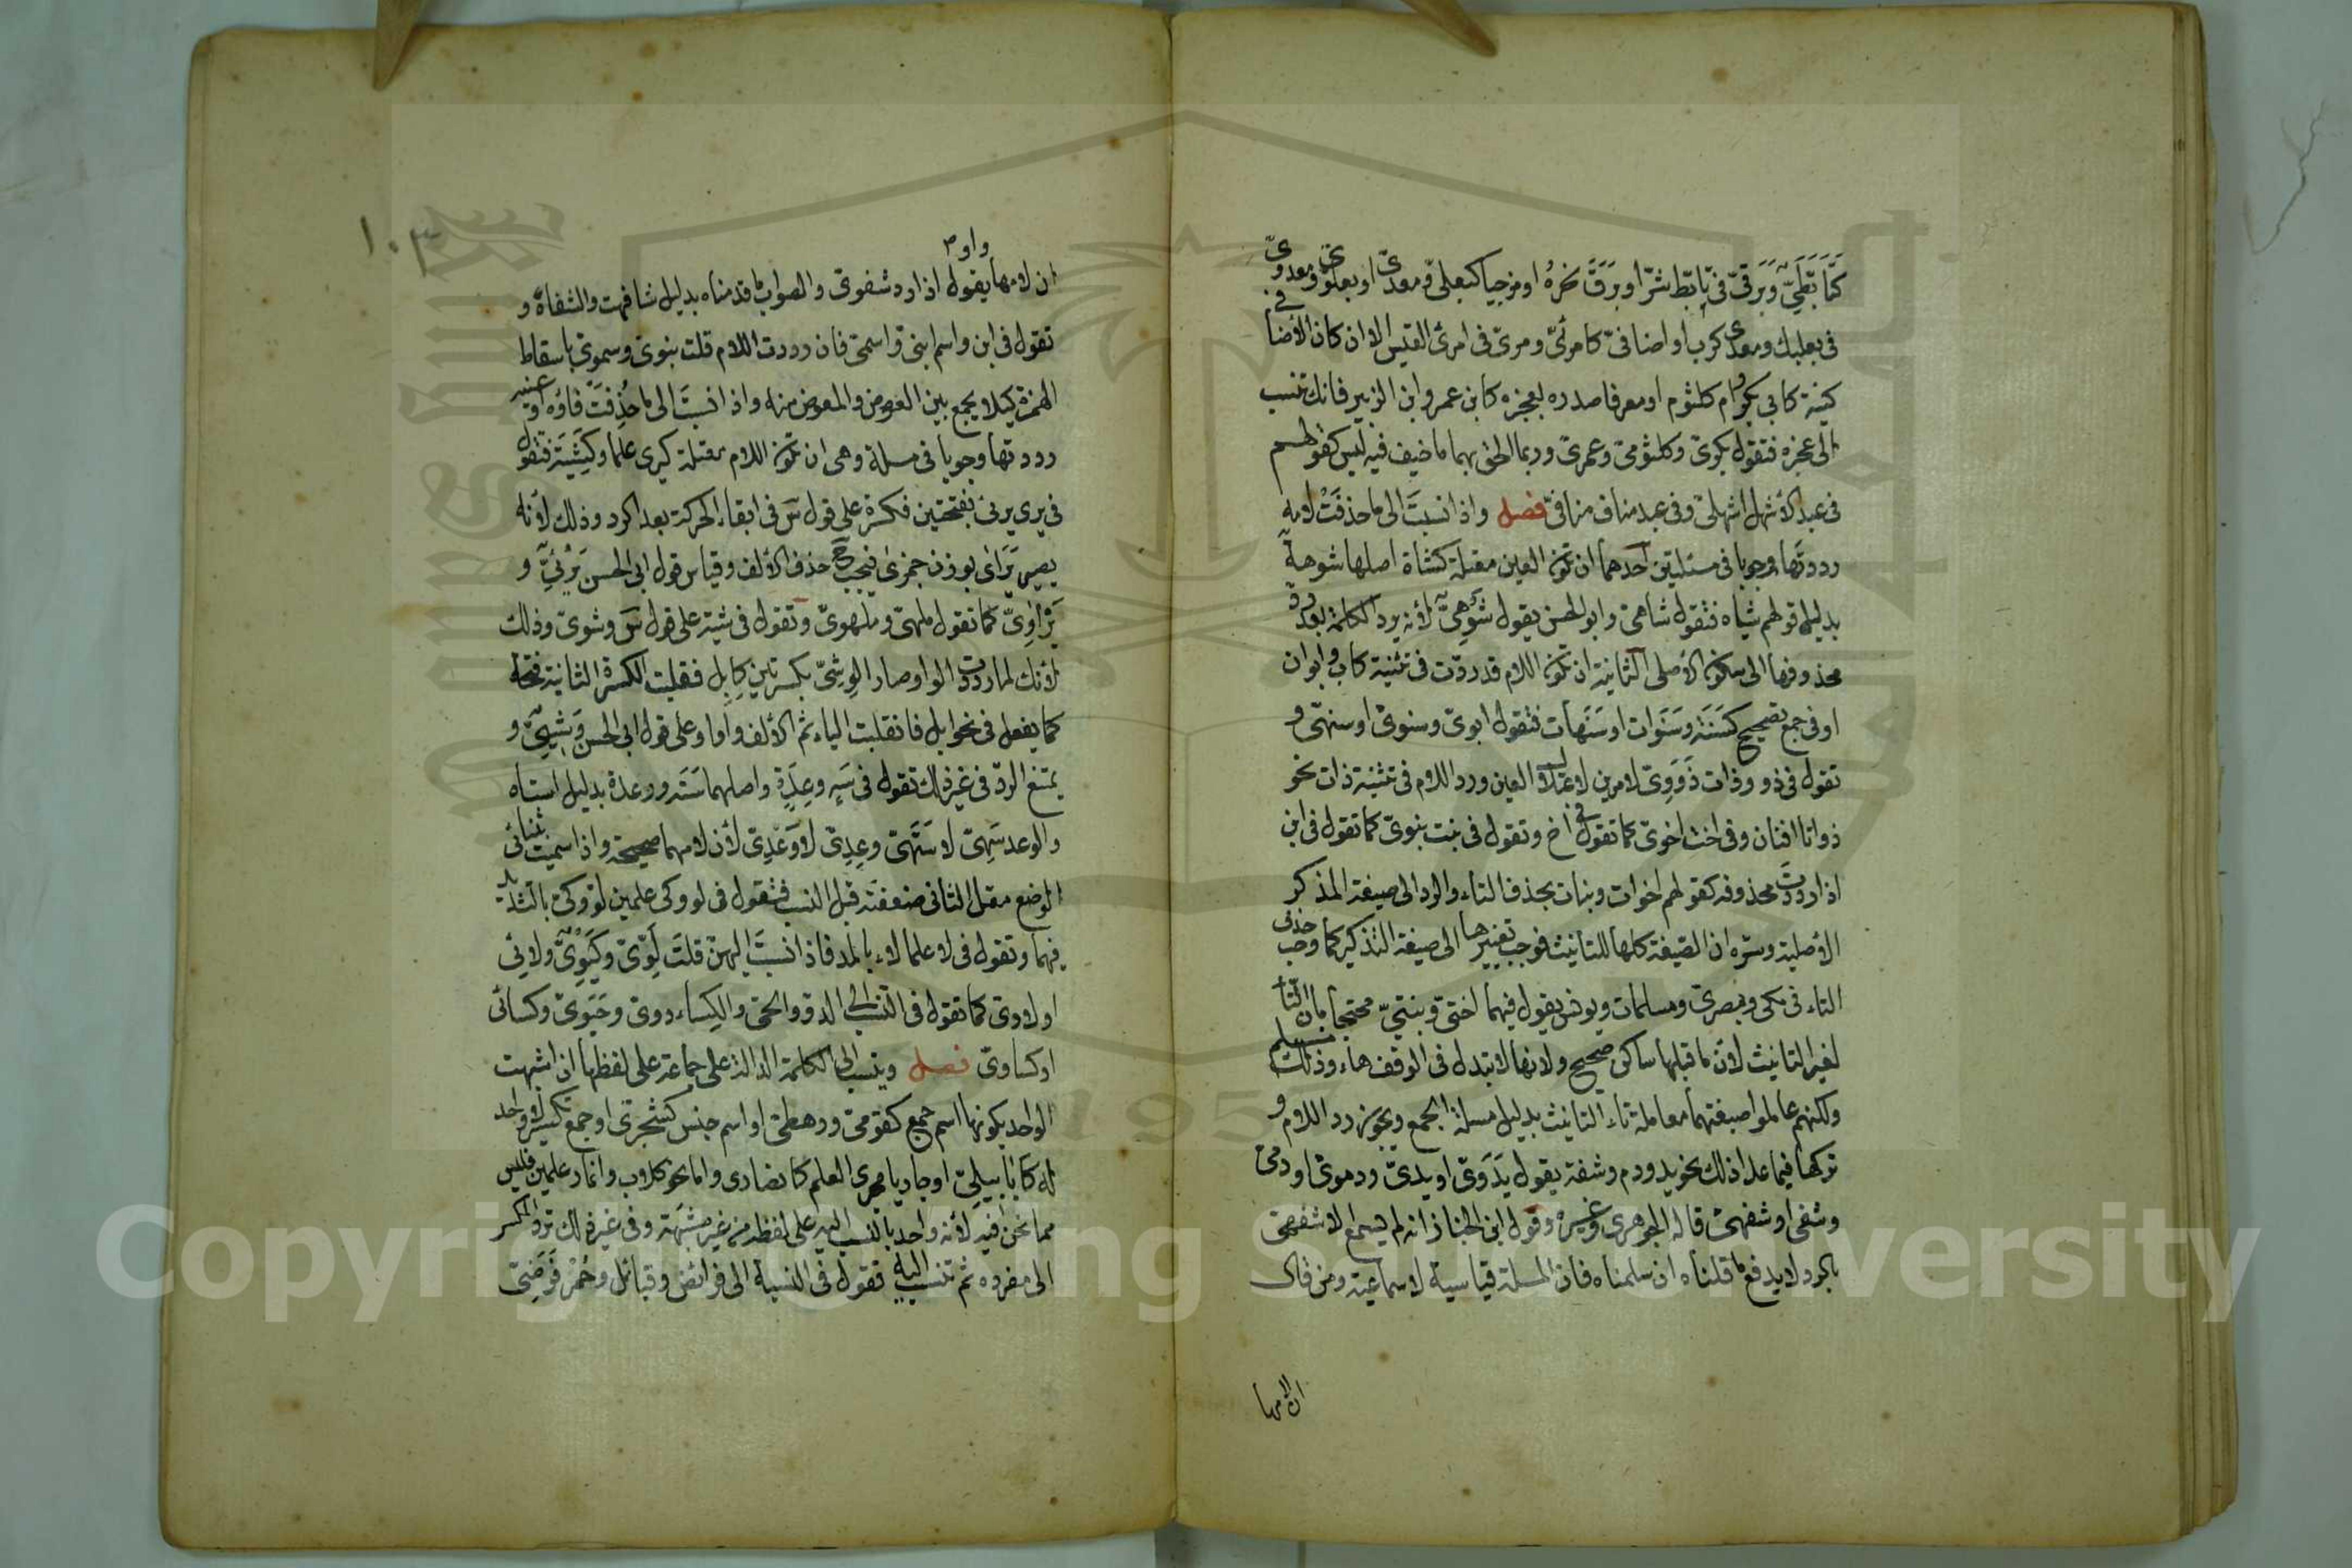 كَتَأَبَّطِيّ وَبَرَقيّ في تأبّط شرّا وبَرَقَ نحرُهُ او مزجيا كبعليّ ومعديّ او بعلويّ ومعدويّ
في بعلبك ومعدى كرب او اضافيّ كامرئيّ ومرئيّ في امرئ القيس الا ان كان الأضا في
كنية كابي بكر وام كلثوم او معرفا صدره بعجزه كابن عمر وابن الزبير فانك تنسب
الى عجزه فتقول بكريّ وكلثوميّ وعمريّ وربما الحق بهما ما خيف فيه لبس كقولهم
في عبد الأشهل اشهليّ وفي عبد مناف منافيّ فصل واذا نسبتَ الى ما حذفَتْ لامه
رددتَها وجوبا في مسئلتين احدهما ان تكون العين معتلّة كشاة اصلها شوهة
بدليل قولهم شياه فتقول شاهيّ وابو الحسن يقول شَوْهِيّ لأنه يرد الكلمة بعد ردّ
محذوفها الى سكونه الأصلى الثانية ان تكون اللام قد ردّت في تثنية كاب وابوان
او في جمع تصحيح كسَنَة وسَنَوات او سَنَهات فتقول ابويّ وسنويّ او سنهيّ و
تقول في ذو وذات ذَوَوِيّ لامرين لاعتلال العين ورد اللام في تثنية ذات نحو
ذواتا افنان وفي اخت اخويّ كما تقول في اخ وتقول في بنت بنويّ كما تقول في ابن
اذا رددتَ محذوفه كقولهم اخوات وبنات بحذف التاء والرد الى صيغة المذكر
الأصلية وسرّه ان الصّيغة كلها للتأنيث فوجب تغييرها الى صيغة التذكير كما وجب حذف
التاء في مكى وبصرى ومسلمات ويونس يقول فيهما اختيّ وبنتيّ محتجا بان التّاء
لغير التانيث لأن ما قبلها ساكن صحيح ولانها لا تبدل في الوقف هاء وذلك مسلم
ولكنهم عاملوا صيغتهما معاملة تاء التانيث بدليل مسئلة الجمع ويجوز رد اللام و
تركها فيما عدا ذلك نحو يد ودم وشفة يقول يَدَوِيّ او يديّ ودمويّ او دميّ
وشفى او شفهىّ قاله الجوهرى وغيره وقول ابن الخباز انه لم يسمع الا شفهيّ
بالرد لا يدفع ما قلناه ان سلمناه فان المسئلة قياسية لا سماعية ومن قال
ان لامها
١٠٣
واو
ان لامها يقول اذا رد شفويّ والصواب ما قدمناه بدليل شافهت والشفاه و
تقول في ابن واسم ابنيّ واسميّ فان رددت اللام قلت بنويّ وسمويّ باسقاط
الهمزة كيلا يجمع بين العوض والمعوض منه واذا نسبتَ الى ما حُذِفَتْ فاؤه او عينه
رددتها وجوبا في مسئلة وهى ان تكون اللام معتلة كيرى علما وكَشِيَة فتقول
في يرى يرئى بفتحتين فكسرة على قول س في ابقاء الحركة بعد الرد وذلك لأنه
يصير يَرَأَى بوزن جمزى فيجب ح حذف الألف وقياس قول ابى الحسن يَرْئِيّ و
يَرْأَوِيّ كما تقول ملهىّ وملهويّ وتقول في شية على قول س وشويّ وذلك
لأنك لما رددت الواو صار الوِشِيّ بكسرتين كإبِل فقلبت الكسرة الثانية فتحة
كما يفعل في نحو ابل فانقلبت الياء ثم الألف واوا وعلى قول ابى الحسن وَشْيِيّ و
يمتنع الردّ في غير ذلك تقول في سَهٍ وعِدَةٍ واصلهما سَتَه ووعدة بدليل استاه
والوعد سَهِيّ لا سَتَهيّ وعِدِيّ لا وَعْدِيّ لأن لامهما صحيحة واذا سميت بثنائى
الوضع معتل الثانى ضعفته قبل النسب فتقول في لو وكى علمين لوّ وكىّ بالتشديد
فيهما وتقول في لا علما لاء بالمد فاذا نسبتَ اليهنّ قلتَ لَوِّيّ وكَيَوِيّ ولائِى
او لاوىّ كما تقول في النسب الى الدوّ والحىّ والكِساء دوىّ وحَيَوِيّ وكسائى
او كساوىّ فصل وينسب الى الكلمة الدالة على جماعة على لفظها ان اشبهت
الواحد بكونها اسم جمع كقوميّ ورهطيّ او اسم جنس كشجريّ او جمع تكسير لا واحد
له كأبابيلِيّ او جاريا مجرى العلم كانصارى واما نحو كلاب وانمار علمين فليس
مما نحن فيه لأنه واحد بالنسب اليه على لفظه من غير شبهة وفي غير ذلك ترد المكسر
الى مفرده ثم تنسب اليه تقول في النسبة الى فرائض وقبائل وحُمْر فَرَضِيّ